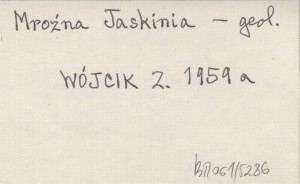 Mroźna Jaskinia – geol.
WÓJCIK Z. 1959 a